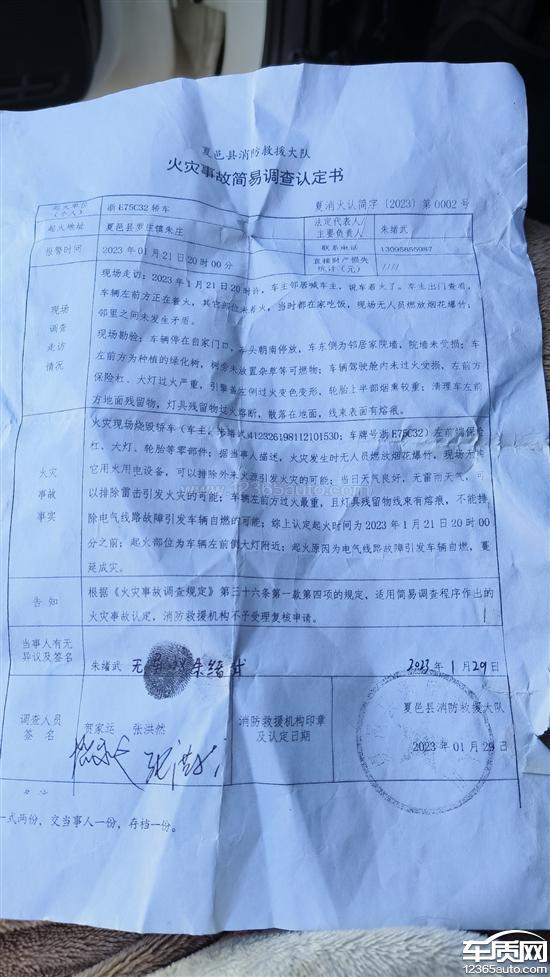 夏邑县消防救援大队
火灾事故简易调查认定书
夏消火认简字〔2023〕第0002号
起火单位（个人） 浙E75C32轿车 法定代表人/主要负责人 朱绪武
起火地址 夏邑县罗庄镇朱庄 联系电话 13095855987
报警时间 2023年01月21日20时00分 直接财产损失统计（元） ////
现场调查走访情况
现场走访：2023年1月21日20时许，车主邻居喊车主，说车着火了。车主出门查看，
车辆左前方正在着火，其它部位未着火，当时都在家吃饭，现场无人员燃放烟花爆竹；
邻里之间未发生矛盾。
现场勘验：车辆停在自家门口，车头朝南停放，车东侧为邻居家院墙，院墙未受损；车
左前方为种植的绿化树，树旁未放置杂草等可燃物；车辆驾驶舱内未过火受损，左前方
保险杠、大灯过火严重，引擎盖左侧过火变色变形，轮胎上半部烟熏较重；清理车左前
方地面残留物，灯具残留物过火熔断，散落在地面，线束表面有熔痕。
火灾事故事实
火灾现场烧毁轿车（车主：朱绪武 412326198112101530；车牌号浙E75C32）左前端保险
杠、大灯、轮胎等零部件；据当事人描述，火灾发生时无人员燃放烟花爆竹，现场无其
它用火用电设备，可以排除外来火源引发火灾的可能；当日天气良好，无雷雨天气，可
以排除雷击引发火灾的可能；车辆左前方过火最重，且灯具残留物线束有熔痕，不能排
除电气线路故障引发车辆自燃的可能；综上认定起火时间为2023年1月21日20时00
分之前；起火部位为车辆左前侧大灯附近；起火原因为电气线路故障引发车辆自燃，蔓
延成灾。
告知
根据《火灾事故调查规定》第三十六条第一款第四项的规定，适用简易调查程序作出的
火灾事故认定，消防救援机构不予受理复核申请。
当事人有无异议及签名 朱绪武 无异议 朱绪武 2023年1月29日
调查人员签名 贺家运 张洪然 消防救援机构印章及认定日期 夏邑县消防救援大队
2023年01月29日
一式两份，交当事人一份，存档一份。
www.12365auto.com
车质网
12365auto.com